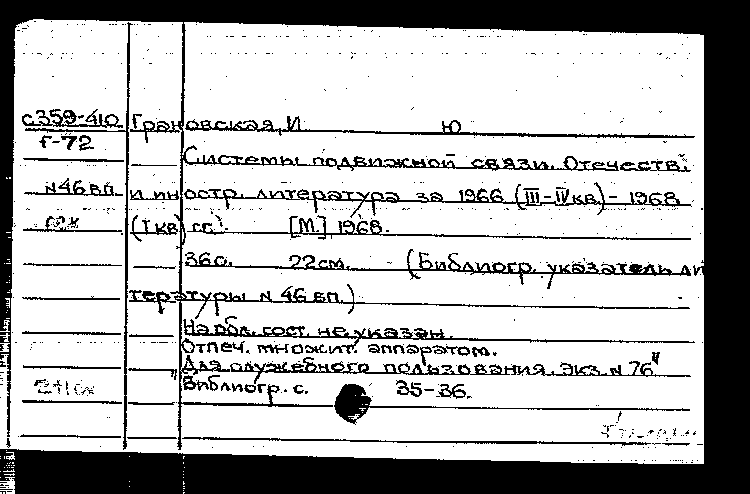 с359-410 Грановская, И Ю
Г-72
Системы подвижной связи. Отечеств.
N46вп и иностр. литература за 1966 (III-IVкв)-1968
(I кв) гг. [М.] 1968.
36с. 22см. (Библиогр. указатель ли
тературы N 46 вп.)
На обл. сост. не указан.
Отпеч. множит. аппаратом.
"Для служебного пользования. Экз. N 76"
Библиогр. с. 35-36.